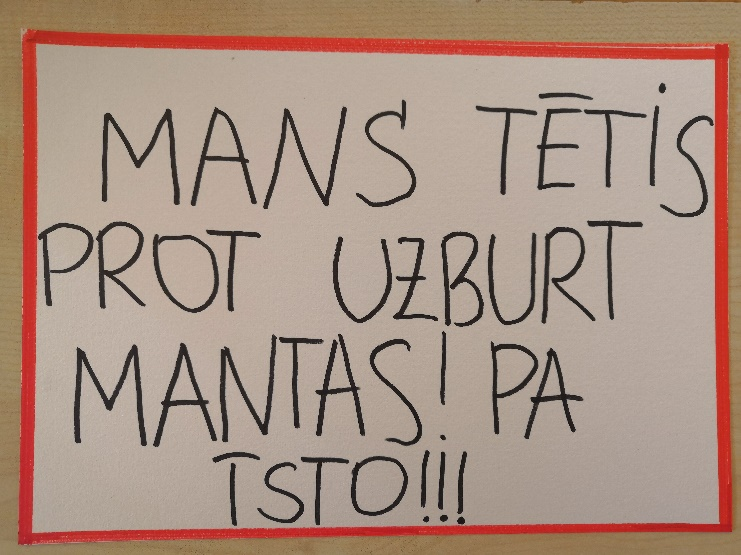 MANS TĒTiS
PROT UZBURT
MANTAS! PA
TSTO!!!